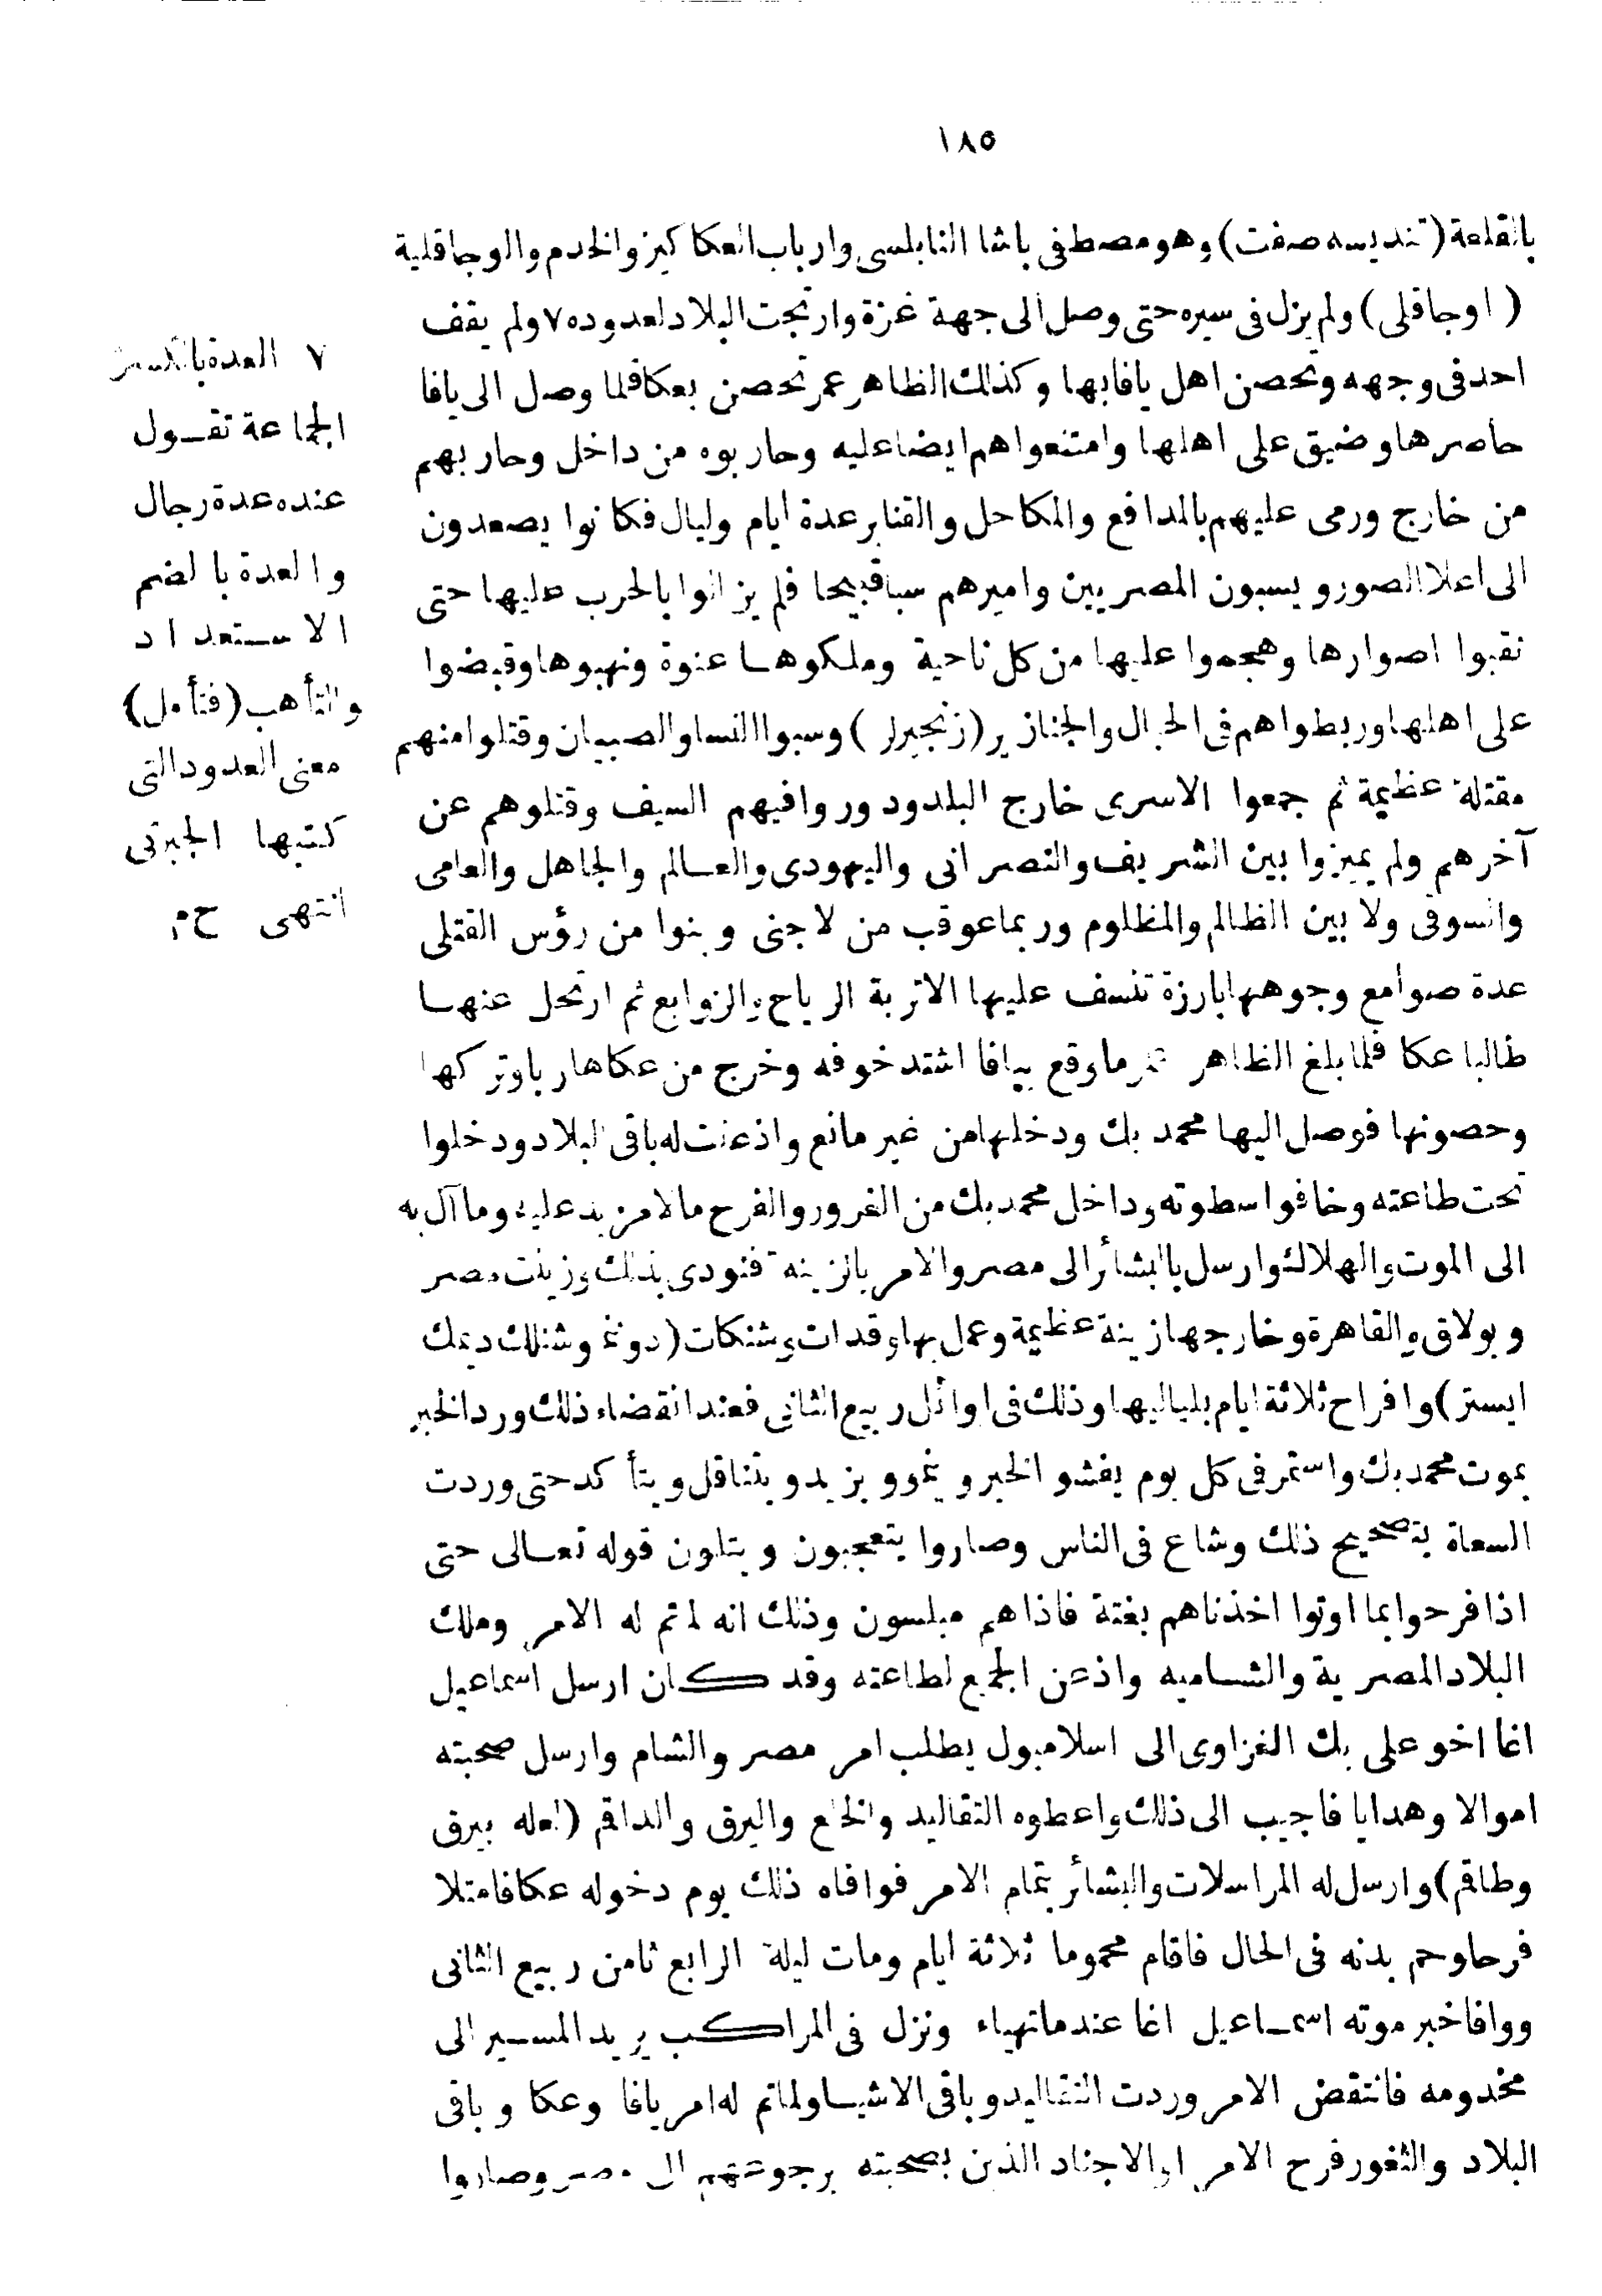 ١٨٥
بالقلعة (تنديسه صفت) وهو مصطفى باشا النابلسى وارباب العكاكيز والخدم والوجاقلية
( اوجاقلى ) ولم يزل فى سيره حتى وصل الى جهة غزة وارتجت البلاد لعدوده ٧ ولم يقف
احد فى وجهه وتحصن اهل يافا بها وكذلك الظاهر عمر تحصن بعكا فلما وصل الى يافا
حاصرها وضيق على اهلها وامتنعوا هم ايضا عليه وحاربوه من داخل وحاربهم
من خارج ورمى عليهم بالمدافع والمكاحل والقنابر عدة ايام وليال فكانوا يصعدون
الى اعلا الصور ويسبون المصريين واميرهم سبا قبيحا فلم يزالوا بالحرب عليها حتى
نقبوا اصوارها وهجموا عليها من كل ناحية وملكوها عنوة ونهبوها وقبضوا
على اهلها وربطواهم فى الحبال والجنازير (زنجيرلر) وسبوا النسا والصبيان وقتلوا منهم
مقتلة عظيمة ثم جمعوا الاسرى خارج البلد ودوروا فيهم السيف وقتلوهم عن
آخرهم ولم يميزوا بين الشريف والنصرانى واليهودى والعالم والجاهل والعامى
والسوقى ولا بين الظالم والمظلوم وربما عوقب من لا جنى وبنوا من رؤس القتلى
عدة صوامع وجوهها بارزة تنسف عليها الاتربة الرياح والزوابع ثم ارتحل عنها
طالبا عكا فلما بلغ الظاهر عمر ما وقع بيافا اشتد خوفه وخرج من عكا هاربا وتركها
وحصونها فوصل اليها محمد بك ودخلها من غير مانع واذعنت له باقى البلاد ودخلوا
تحت طاعته وخافوا سطوته وداخل محمد بك من الغرور والفرح ما لا مزيد عليه وما آل به
الى الموت والهلاك وارسل بالبشائر الى مصر والامر بالزينه فنودى بذلك وزينت مصر
وبولاق والقاهرة وخارجها زينة عظيمة وعمل بها وقدات وشنكات (دونم وشنلك ديمك
ايستر) وافراح ثلاثة ايام بلياليها وذلك فى اوائل ربيع الثانى فعند انقضاء ذلك ورد الخبر
بموت محمد بك واستمر فى كل يوم يفشو الخبر وينمو ويزيد ويتناقل ويتأكد حتى وردت
السعاة بتصحيح ذلك وشاع فى الناس وصاروا يتعجبون ويتلون قوله تعالى حتى
اذا فرحوا بما اوتوا اخذناهم بغتة فاذا هم مبلسون وذلك انه لما تم له الامر وملك
البلاد المصرية والشاميه واذعن الجميع لطاعته وقد كان ارسل اسماعيل
اغا اخو على بك الغزاوى الى اسلامبول يطلب امر مصر والشام وارسل صحبته
اموالا وهدايا فاجيب الى ذلك واعطوه التقاليد والخلع واليرق والداقم (لعله بيرق
وطاقم) وارسل له المراسلات والبشائر بتمام الامر فوافاه ذلك يوم دخوله عكا فامتلا
فرحا وحم بدنه فى الحال فاقام محموما ثلاثة ايام ومات ليلة الرابع ثامن ربيع الثانى
ووافا خبر موته اسماعيل اغا عندما تهياء ونزل فى المراكب يريد المسير الى
مخدومه فانتقض الامر وردت التقاليد وباقى الاشيا ولما تم له امر يافا وعكا وباقى
البلاد والثغور فرح الامرا والاجناد الذين بصحبته برجوعهم الى مصر وصاروا
٧ العدة بالكسر
الجماعة تقول
عنده عدة رجال
والعدة بالضم
الاستعداد
والتأهب (فتأمل)
معنى العدود التى
كتبها الجبرتى
انتهى ح م